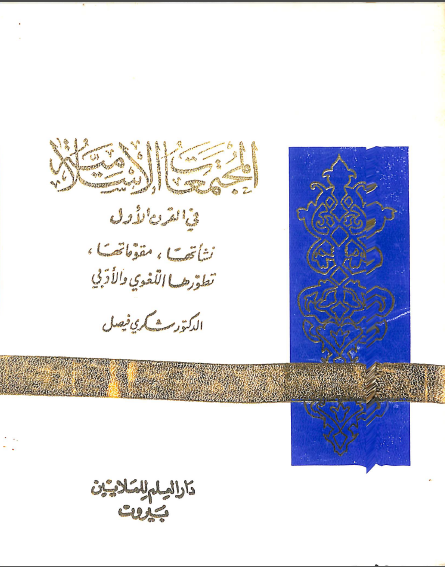 المجتمعات الإسلامية
في القرن الأول
نشأتها، مقوماتها،
تطورها اللغوي والأدبي
الدكتور شكري فيصل
دار العلم للملايين
بيروت